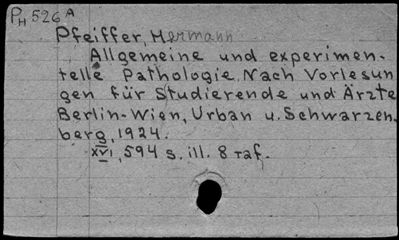 PH 526 A
Pfeiffer, Hermann
Allgemeine und experimen-
telle Pathologie. Nach Vorlesun
gen für Studierende und Ärzte
Berlin-Wien, Urban u. Schwarzen-
berg, 1924.
XVI, 594 s. ill. 8 Taf.